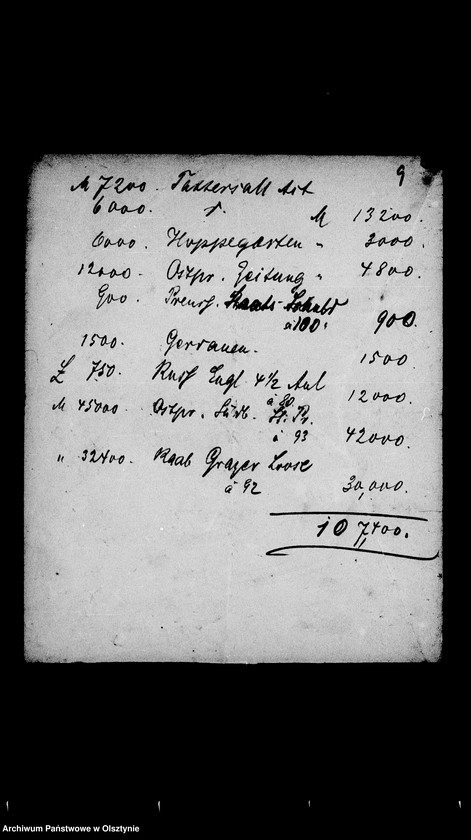 9
M 7200. Tattersall Act
6000. " M 13200.
6000. Hoppegarten " 3000.
12000. Ostpr. Zeitung " 4800.
900. Preuss. Staats-Schuld
à 100. 900.
1500. Gerdauen. 1500
£ 750. Russ Engl 4 1/2 Anl
à 80 12000.
M 45000. Ostpr. Südb. St. Pr.
à 93 42000.
" 32400. Raab Grazer Loose
à 92 30,000.
107,400.
Archiwum Państwowe w Olsztynie